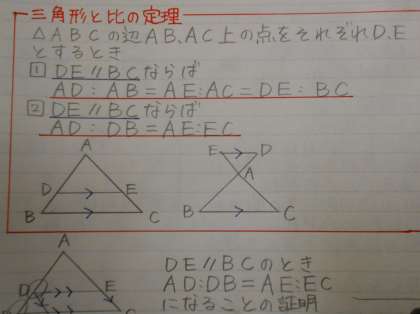 三角形と比の定理
△ABCの辺AB、AC上の点をそれぞれD、E
とするとき
1 DE∥BCならば
AD:AB=AE:AC=DE:BC
2 DE∥BCならば
AD:DB=AE:EC
A
D
E
B
C
E
D
A
B
C
A
D
E
DE∥BCのとき
AD:DB=AE:EC
になることの証明